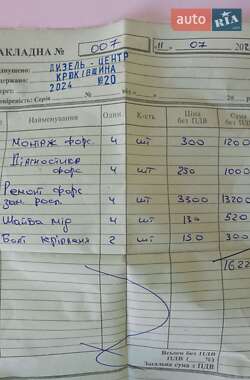 auto RIA
НАКЛАДНА № 007 11 07 202
ДИЗЕЛЬ - ЦЕНТР
КРЮКІВЩИНА
2024 №20
Серія
Найменування Один. К-сть Ціна без П.Д.В Сума без П.Д.В
Монтаж форс. 4 шт 300 1200
Діагностика
форс 4 шт 250 1000
Ремонт форс
зам. расп. 4 шт 3300 13200
Шайба мід 4 шт 130 520
Болт кріплення 2 шт 150 300
1622
Всього без П.Д.В
П.Д.В (   %)
Загальна сума з П.Д.В